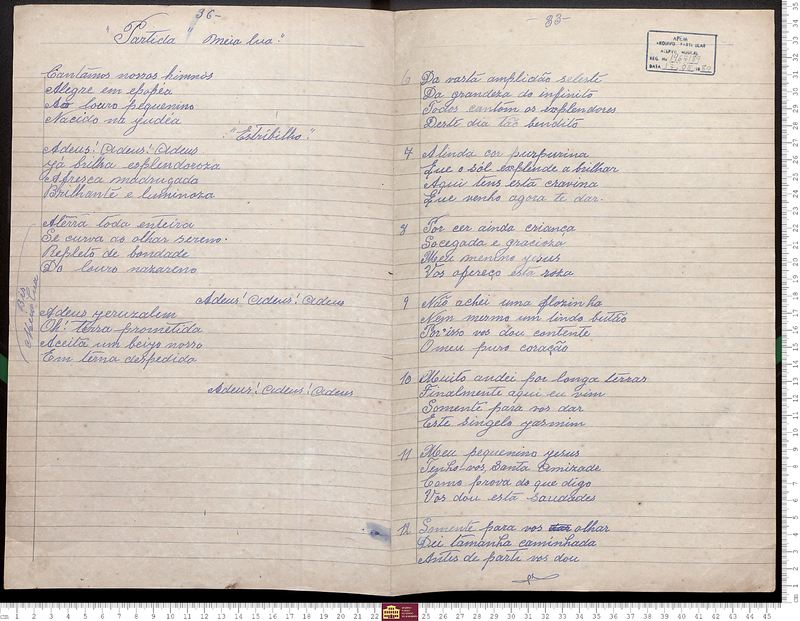 36-
"Partida" "Meia lua."
Cantâmus nossos himnos
Alegre em epopéa
Ao Louro pequenino
Nacido na judéa
"Estribilho."
Adeus! Adeus! Adeus
Já brilha esplendoroza
A fresca madrugada
Brilhante e luminoza
A terra toda enteira
Se curva ao olhar sereno.
Repleto de bondade
Do louro nazareno
Adeus! Adeus! Adeus
Bis
Meia lua
Adeus yeruzalem
Oh! terra prometida
Aceita um beijo nosso
Em terna despedida
Adeus! Adeus! Adeus
-33-
APEM
ARQUIVO PARTICULAR
ACERVO MUSICAL
REG. No
DATA
6 Da vasta amplidão seleste
Da grandeza do infinito
Todos cantam os esplendores
Deste dia tão bendito
7 A linda cor purpurina
Que o sol esplende a brilhar
Aqui tens esta cravina
Que venho agora te dar.
8 Por cer ainda criança
Socegada e gracioza
Meu menino yesus
Vos ofereço esta roza
9 Não achei uma flozinha
Nem mesmo um lindo butão
Por isso vos dou contente
O meu puro coração
10 Muito andei por longa terras
Finalmente aqui eu vim
Somente para vos dar
Este singelo yasmim
11 Meu pequenino yesus
Tenho-vos, Santa Amizade
Como prova do que digo
Vos dou esta saudades
12 Somente para vos olhar
Dei tamanha caminhada
Antes de parti vos dou